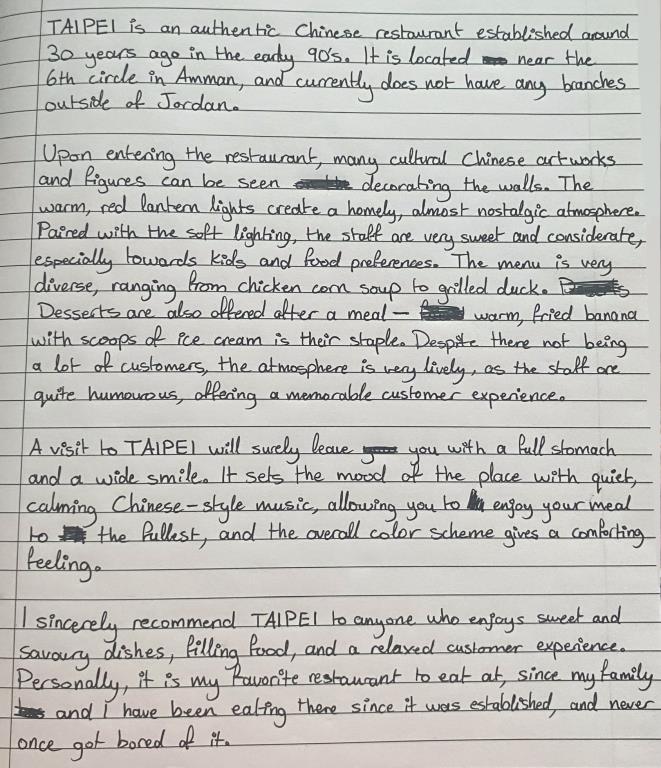 TAIPEI is an authentic Chinese restaurant established around
30 years ago in the early 90's. It is located near the
6th circle in Amman, and currently does not have any branches
outside of Jordan.
Upon entering the restaurant, many cultural Chinese artworks
and figures can be seen decorating the walls. The
warm, red lantern lights create a homely, almost nostalgic atmosphere.
Paired with the soft lighting, the staff are very sweet and considerate,
especially towards kids and food preferences. The menu is very
diverse, ranging from chicken corn soup to grilled duck.
Desserts are also offered after a meal - warm, fried banana
with scoops of ice cream is their staple. Despite there not being
a lot of customers, the atmosphere is very lively, as the staff are
quite humourous, offering a memorable customer experience.
A visit to TAIPEI will surely leave you with a full stomach
and a wide smile. It sets the mood of the place with quiet,
calming Chinese-style music, allowing you to enjoy your meal
to the fullest, and the overall color scheme gives a comforting
feeling.
I sincerely recommend TAIPEI to anyone who enjoys sweet and
savoury dishes, filling food, and a relaxed customer experience.
Personally, it is my favorite restaurant to eat at, since my family
and I have been eating there since it was established, and never
once got bored of it.